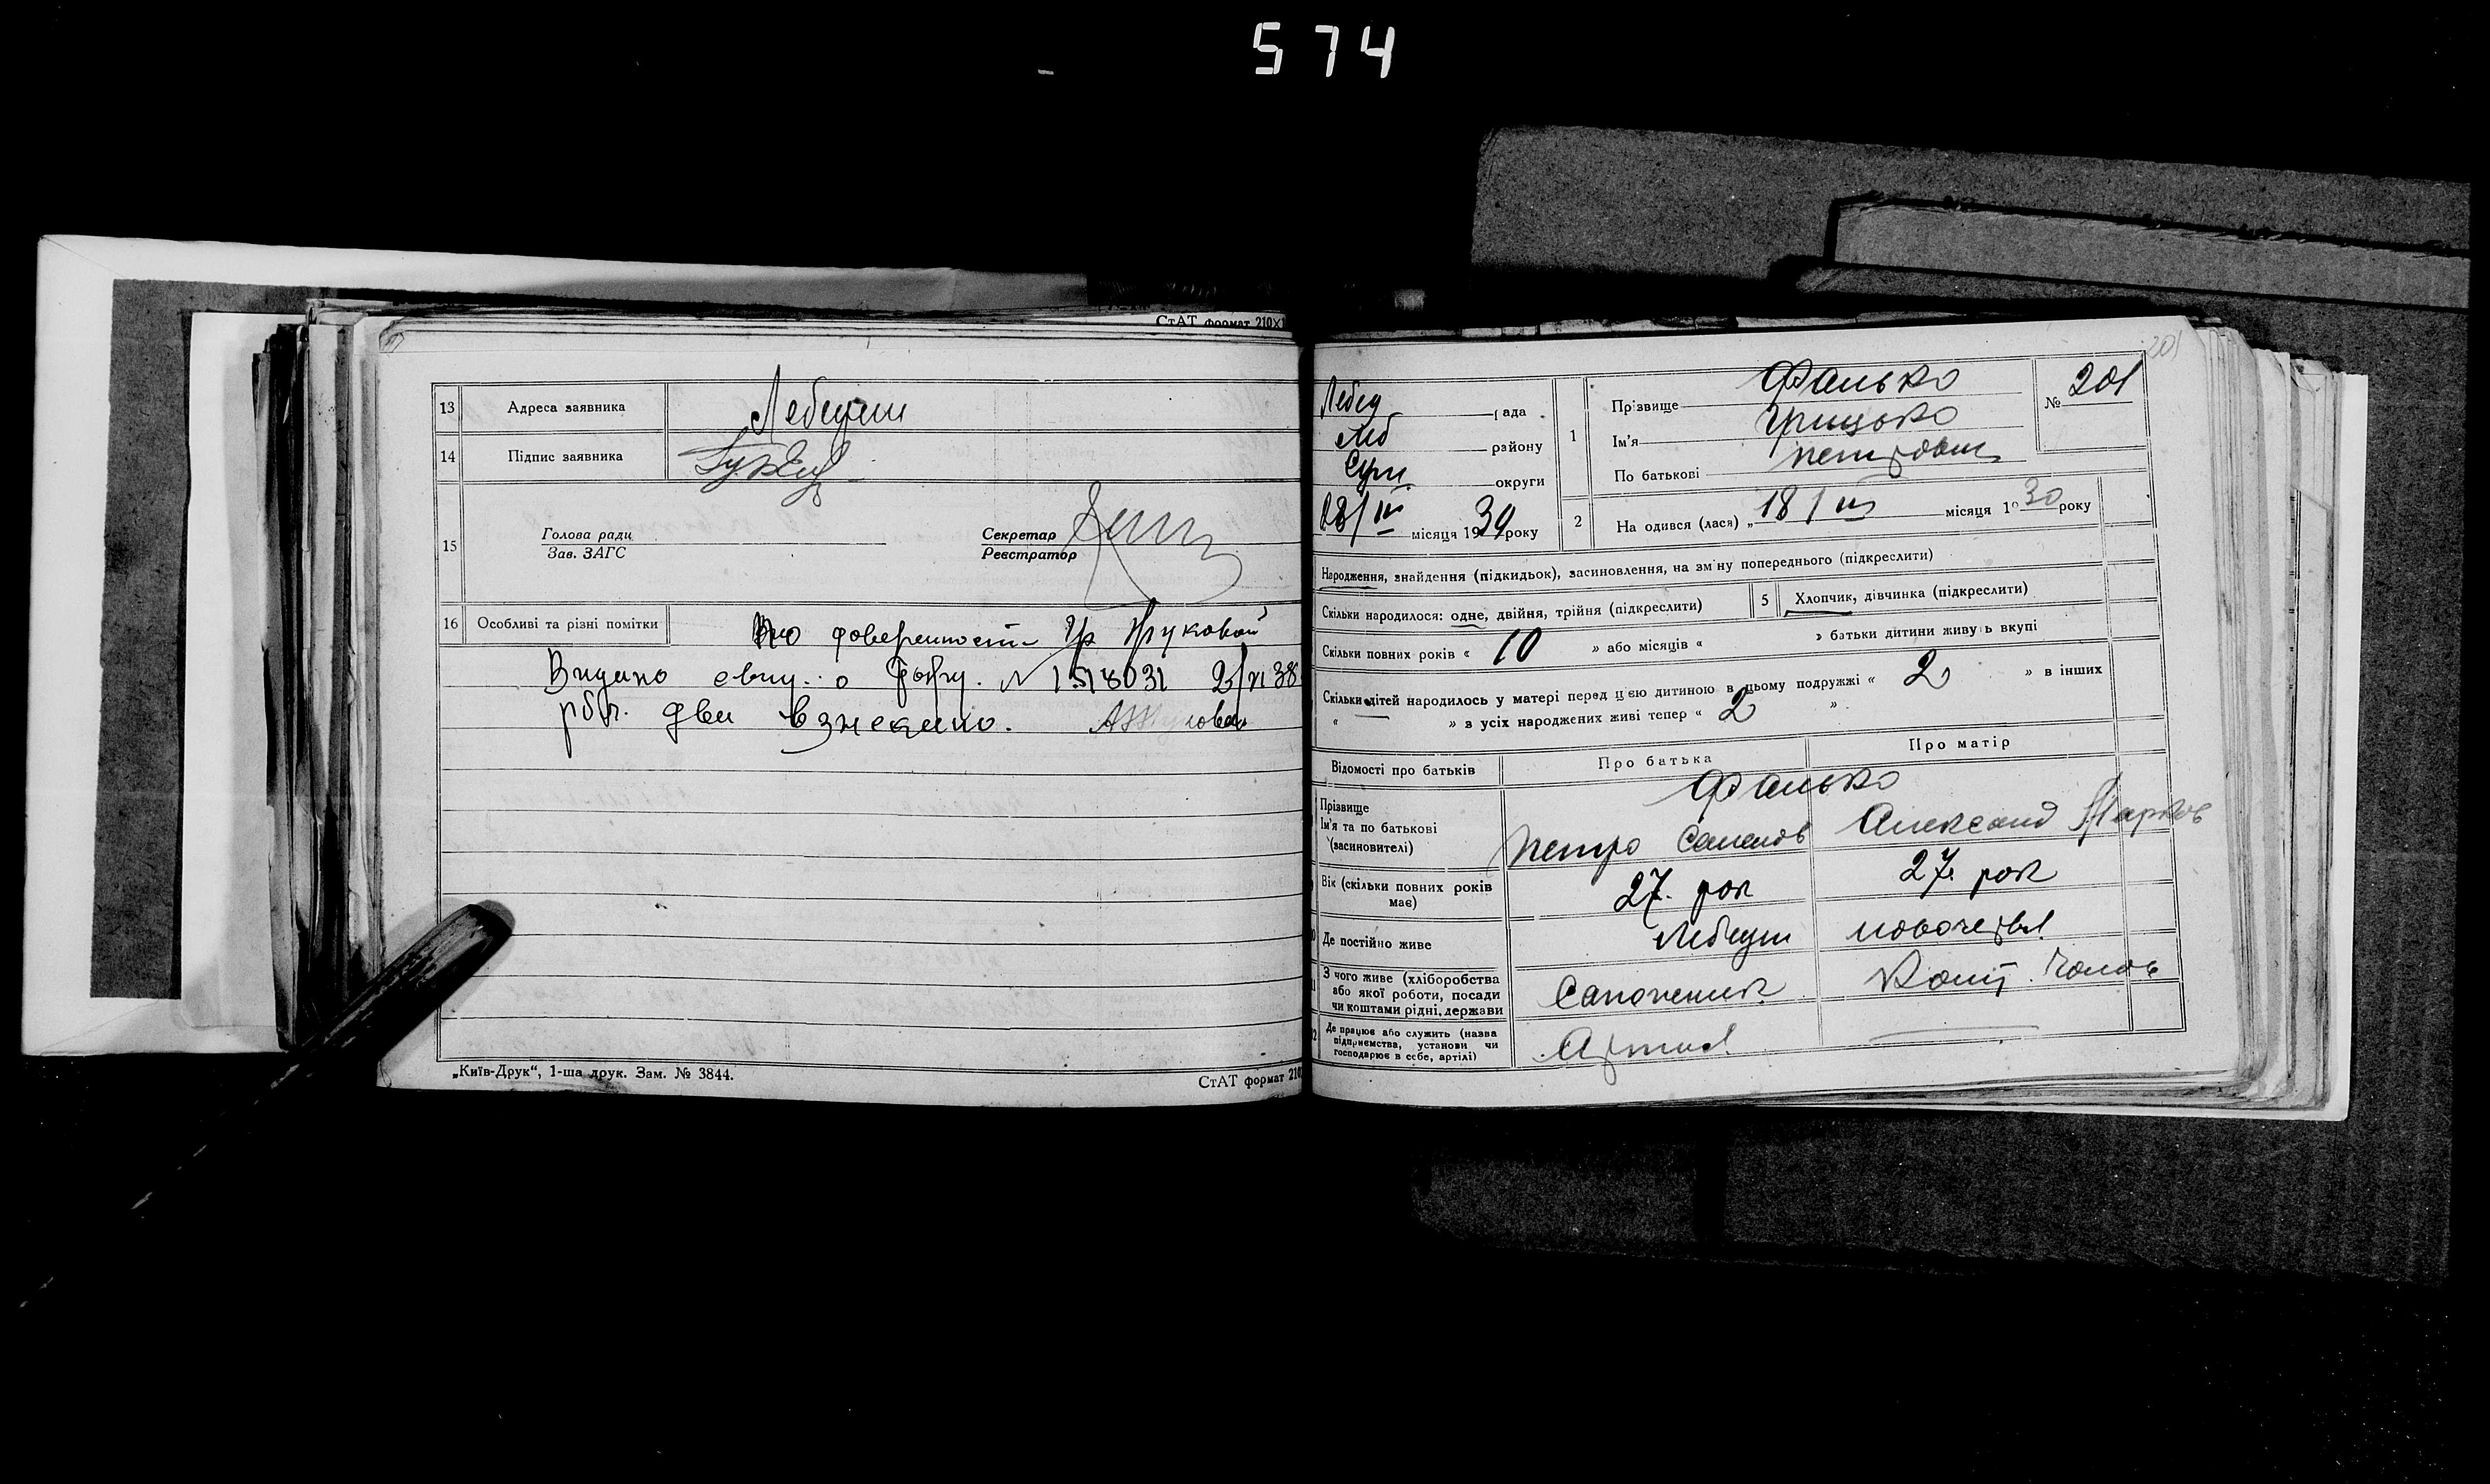 574
СтАТ формат 210X
13 Адреса заявника Лебедин
14 Підпис заявника
15 Голова ради
Зав. ЗАГС
Секретар
Реєстратор
16 Особливі та різні помітки По доверенности гр
Видано свид. о № 1518031 38
две взнскано.
„Київ-Друк“, 1-ша друк. Зам. № 3844.
СтАТ формат 210
201
Лебед рада
Леб району
Сум. округи
28/III місяця 1930 року
1 Прізвище Фалько
Ім'я Грицько
По батькові Петрович
№ 201
2 На одився (лася) „ 18/III місяця 1930 року
Народження, знайдення (підкидьок), засиновлення, на зміну попереднього (підкреслити)
Скільки народилося: одне, двійня, трійня (підкреслити)
5 Хлопчик, дівчинка (підкреслити)
Скільки повних років « 10 » або місяців « » батьки дитини живуь вкупі
Скільки дітей народилось у матері перед цією дитиною в цьому подружжі « 2 » в інших
« » в усіх народжених живі тепер « 2 »
Відомості про батьків Про батька Про матір
Прізвище Фалько
Ім'я та по батькові
(засиновителі) Петро Семенов Александ Марков
Вік (скільки повних років має) 27. рок 27. рок
Де постійно живе Лебедин
З чого живе (хліборобства
або якої роботи, посади
чи коштами рідні, держави Сапожник Кошт. Чолов
Де працює або служить (назва
підприємства, установи чи
господарює в себе, артілі) Артіл.